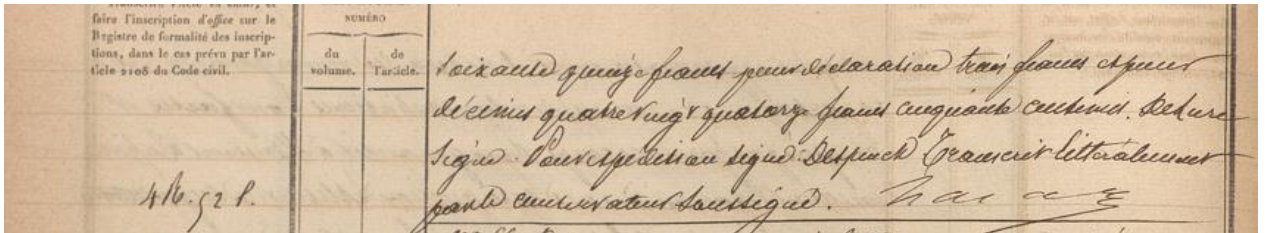 faire l'inscription d'office sur le
Registre de formalité des inscrip-
tions, dans le cas prévu par l'ar-
ticle 2108 du Code civil.
NUMÉRO
du
volume.
de
l'article.
4 R. 52 l.
soixante quinze francs pour déclaration trois francs et pour
décimes quatre vingt quatorze francs cinquante centimes.
signé. Pour expédition signé: Transcrit littéralement
par le conservateur soussigné.